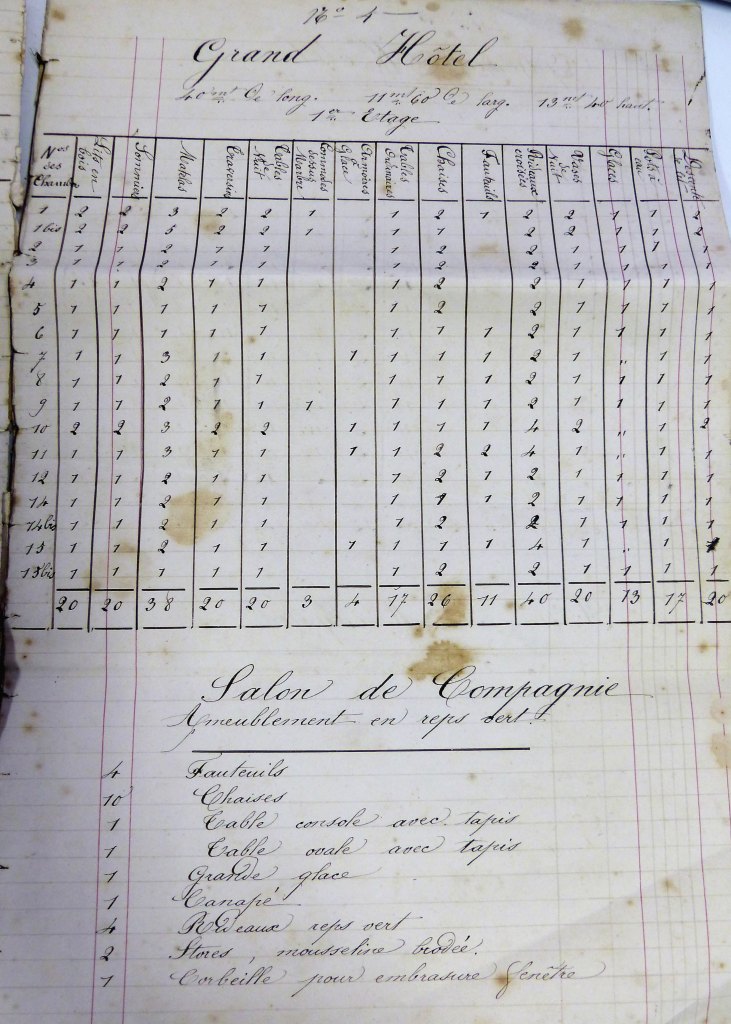 No 4
Grand Hôtel
40 mt de long. 11 mt 60 de larg. 13 mt 40 haut.
1er Etage
Nos des Chambres Lits en bois Sommiers Matelas Traversins Tables de Nuit Commodes dessus Marbre Armoires à Glace Tables Ordinaires Chaises Fauteuils Rideaux croisées Vases de Nuit Glaces Pots à eau Descente de lit
1 2 2 3 2 2 1 1 2 1 2 2 1 1 2
1bis 2 2 5 2 2 1 1 2 2 2 1 1 2
2 1 1 2 1 1 1 2 2 1 1 1 1
3 1 1 2 1 1 1 2 2 1 1 1 1
4 1 1 2 1 1 1 2 2 1 1 1 1
5 1 1 1 1 1 1 2 2 1 1 1 1
6 1 1 1 1 1 1 1 1 2 1 1 1 1
7 1 1 3 1 1 1 1 1 1 2 1 " 1 1
8 1 1 2 1 1 1 1 1 2 1 1 1 1
9 1 1 2 1 1 1 1 1 1 2 1 1 1 1
10 2 2 3 2 2 1 1 1 1 4 2 " 1 2
11 1 1 3 1 1 1 1 2 2 4 1 " 1 1
12 1 1 2 1 1 1 2 1 2 1 1 1 1
14 1 1 2 1 1 1 1 1 2 1 1 1 1
14bis 1 1 2 1 1 1 2 2 1 1 1 1
15 1 1 2 1 1 1 1 1 1 4 1 " 1 1
15bis 1 1 1 1 1 1 2 2 1 1 1 1
20 20 38 20 20 3 4 17 26 11 40 20 13 17 20
Salon de Compagnie
Ameublement en reps vert.
4 Fauteuils
10 Chaises
1 Table console avec tapis
1 Table ovale avec tapis
1 Grande glace
1 Canapé
4 Rideaux reps vert
2 Stores, mousseline brodée.
1 Corbeille pour embrasure fenêtre